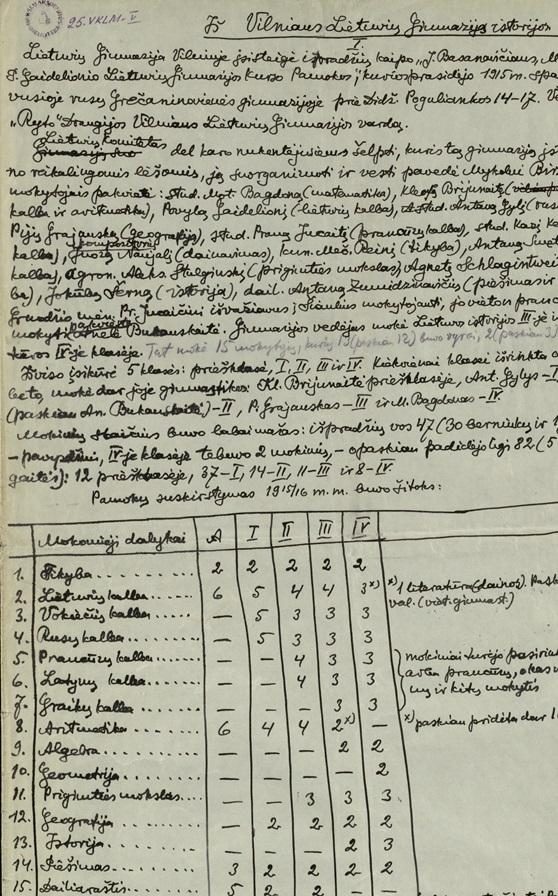 25. VKLM-V
Iš Vilniaus Lietuvių Gimnazijos istorijos
I.
Lietuvių Gimnazija Vilniuje įsisteigė iš pradžių kaipo „J. Basanavičiaus, M
P. Gaidelionio Lietuvių Gimnazijos kurso Pamokos", kurios prasidėjo 1915 m. spa
vusioje rusų Grečaninavienės gimnazijoje prie Didž. Poguliankos 14-17. V
„Ryto" Draugijos Vilniaus Lietuvių Gimnazijos vardą.
Lietuvių Komitetas
del karo nukentėjusiems šelpti, kuris tą gimnaziją įst
no reikalingomis lėšomis, ją suorganizuoti ir vesti pavedė Mykolui Birž
mokytojais pakvietė: stud. Myk. Bagdoną (matematika), Kleofą Brijunaitę
kalba ir aritmetika), Povylą Gaidelionį (lietuvių kalba), stud. Antaną Gylį (rus
Pijų Grajauską (geografija), stud. Praną Jucaitį (prancūzų kalba), stud. Kazį
kalba), kompozitorių Juozą Naujalį (dainavimas), kun. Mač. Reinį (tikyba), Antaną Smet
kalba), agron. Aleks. Stulginskį (prigimties mokslas), Agnetę Schlagintwei
ba), Jokūbą Šerną (istorija), dail. Antaną Žmuidzinavičių (piešimas ir
Gruodžio mėn. Pr. Jucaičiui išvažiavus į Šiaulius mokytojauti, jo vieton pranc
mokyti pakviesta Bukauskaitė. Gimnazijos vedėjas mokė Lietuvos istorijos III-je ir
tūros IV-je klasėje. Tat mokė 15 mokytojų, kurių 13 (paskiau 12) buvo vyrai, 2 (paskiau 3)
Išviso įsikūrė 5 klasės: priešklasė, I, II, III ir IV. Kiekvienai klasei išrinktas a
be to, mokė dar joje gimnastikos: Kl. Brijunaitė priešklasėje, Ant. Gylys – I
(paskiau An. Bukauskaitė) – II, P. Grajauskas – III ir M. Bagdonas – IV.
Mokinių skaičius buvo labai mažas: iš pradžių vos 47 (30 berniukų ir 1
IV-je klasėje tebuvo 2 mokiniu, – o paskiau padidėjo ligi 82 (5
gaitės): 12 priešklasėje, 37 – I, 14 – II, 11 – III ir 8 – IV.
Pamokų suskirstymas 1915/16 m. m. buvo šitoks:
Mokomieji dalykai A I II III IV
1. Tikyba 2 2 2 2 2
2. Lietuvių kalba 6 5 4 4 3 x) x) 1 literatūra (dainos). Pask
val. (viet. gimnast.)
3. Vokiečių kalba — 5 3 3 3
4. Rusų kalba — 5 3 3 3
5. Prancūzų kalba — — 4 3 3 mokiniai turėjo pasirink
6. Lotynų kalba — — 4 3 3 arba prancūzų, o kas
7. Graikų kalba — — — 3 3 nų ir kitų mokytis
8. Aritmetika 6 4 4 2 x) — x) paskiau pridėta dar 1
9. Algebra — — — 2 2
10. Geometrija — — — — 2
11. Prigimties mokslas — — 3 3 3
12. Geografija — 2 2 2 2
13. Istorija — — — 2 3
14. Piešimas 3 2 2 2 2
15. Dailiaraštis 5 2 2 — —